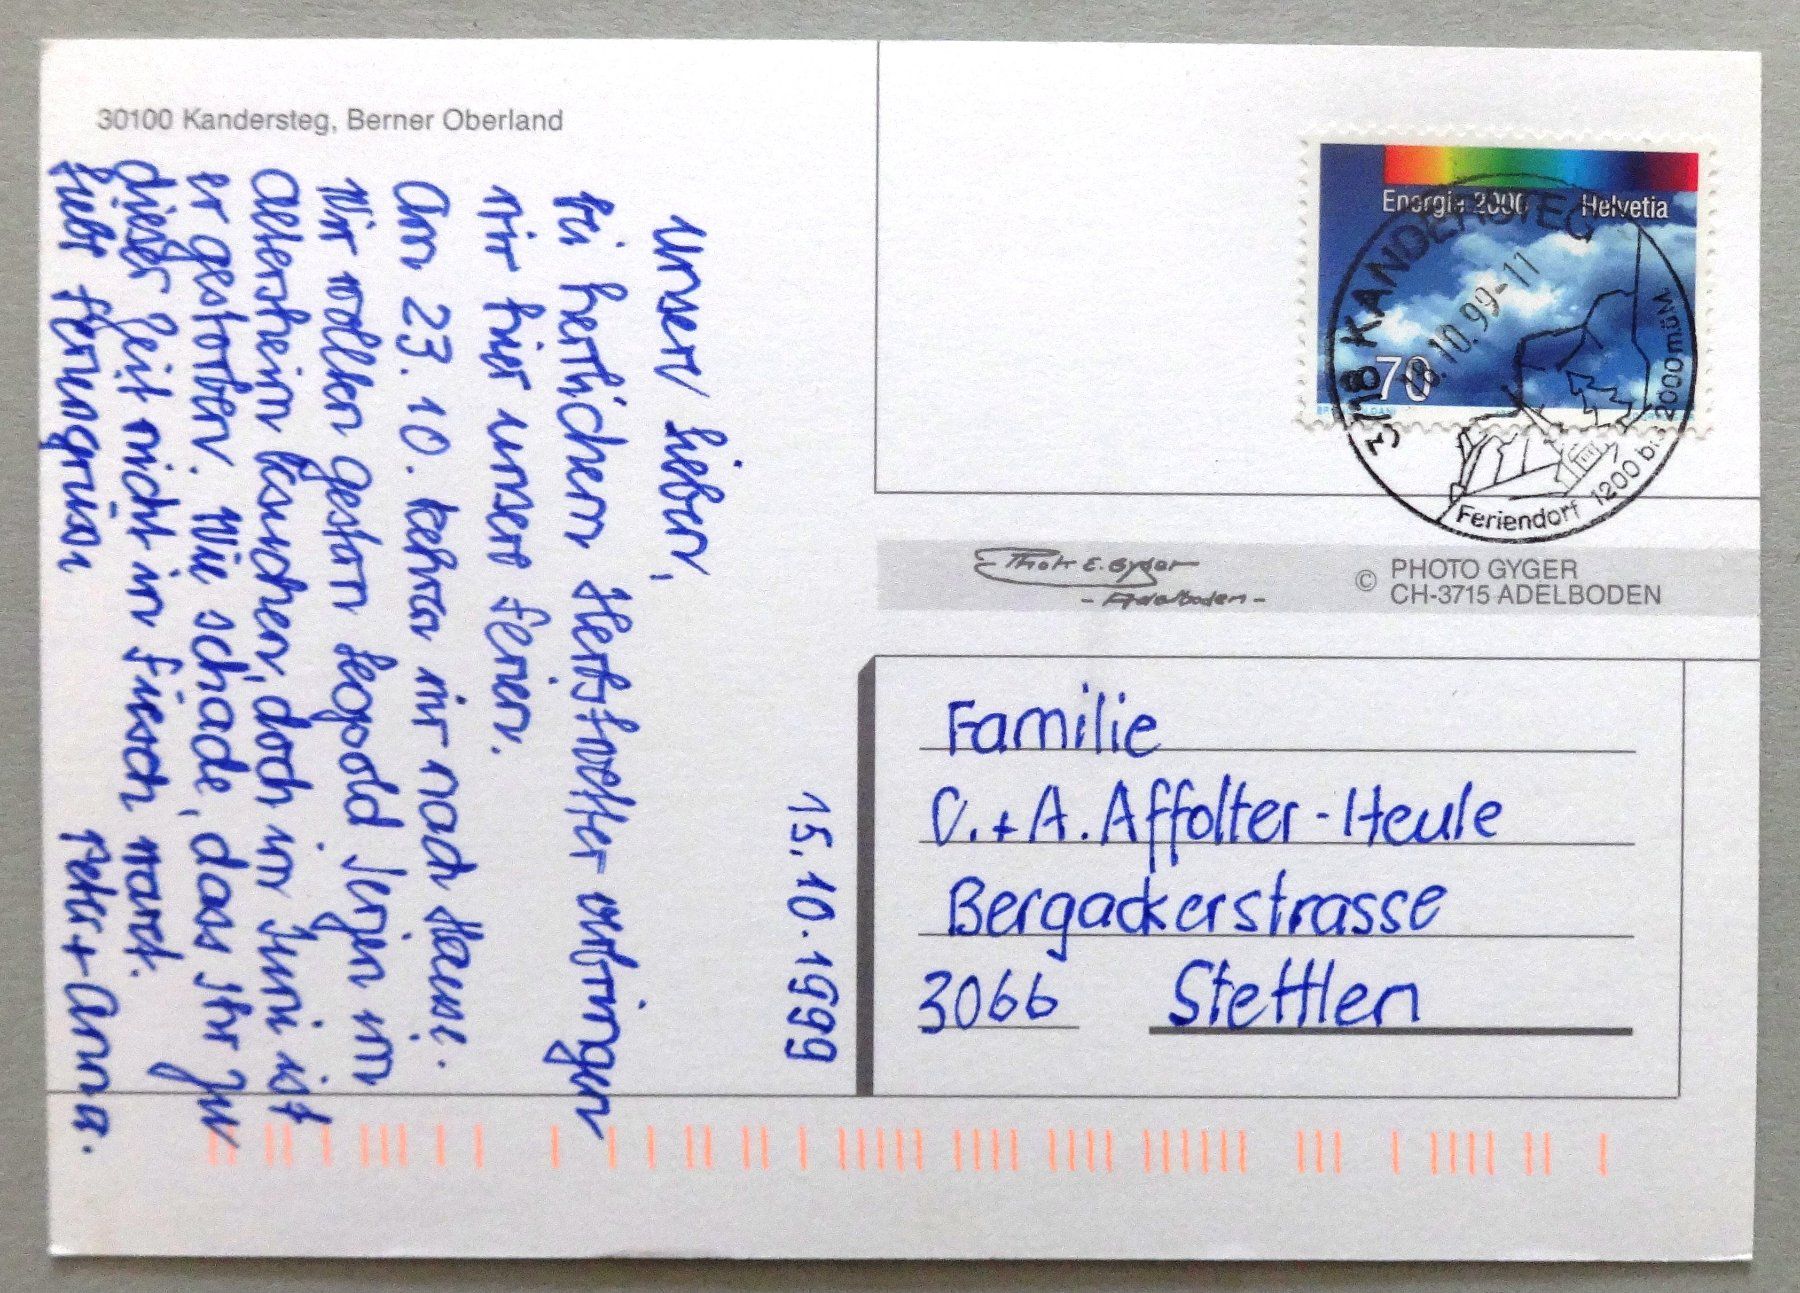 30100 Kandersteg, Berner Oberland
15.10.1999
Unsere Lieben,
Bei herrlichem Herbstwetter verbringen
wir hier unsere Ferien.
Am 23.10. kehren wir nach Hause.
Wir wollten gestern Leopold Jerjen im
Altersheim besuchen, doch im Juni ist
er gestorben. Wie schade, dass Ihr zu
dieser Zeit nicht in Fiesch waret.
Liebe Feriengrüsse
Peter + Anna.
Energie 2000 Helvetia
70
3718 KANDERSTEG
18.10.99-11
Feriendorf 1200 bis 2000 m.ü.M.
Photo E. Gyger
- Adelboden -
© PHOTO GYGER
CH-3715 ADELBODEN
Familie
C. + A. Affolter-Heule
Bergackerstrasse
3066 Stettlen